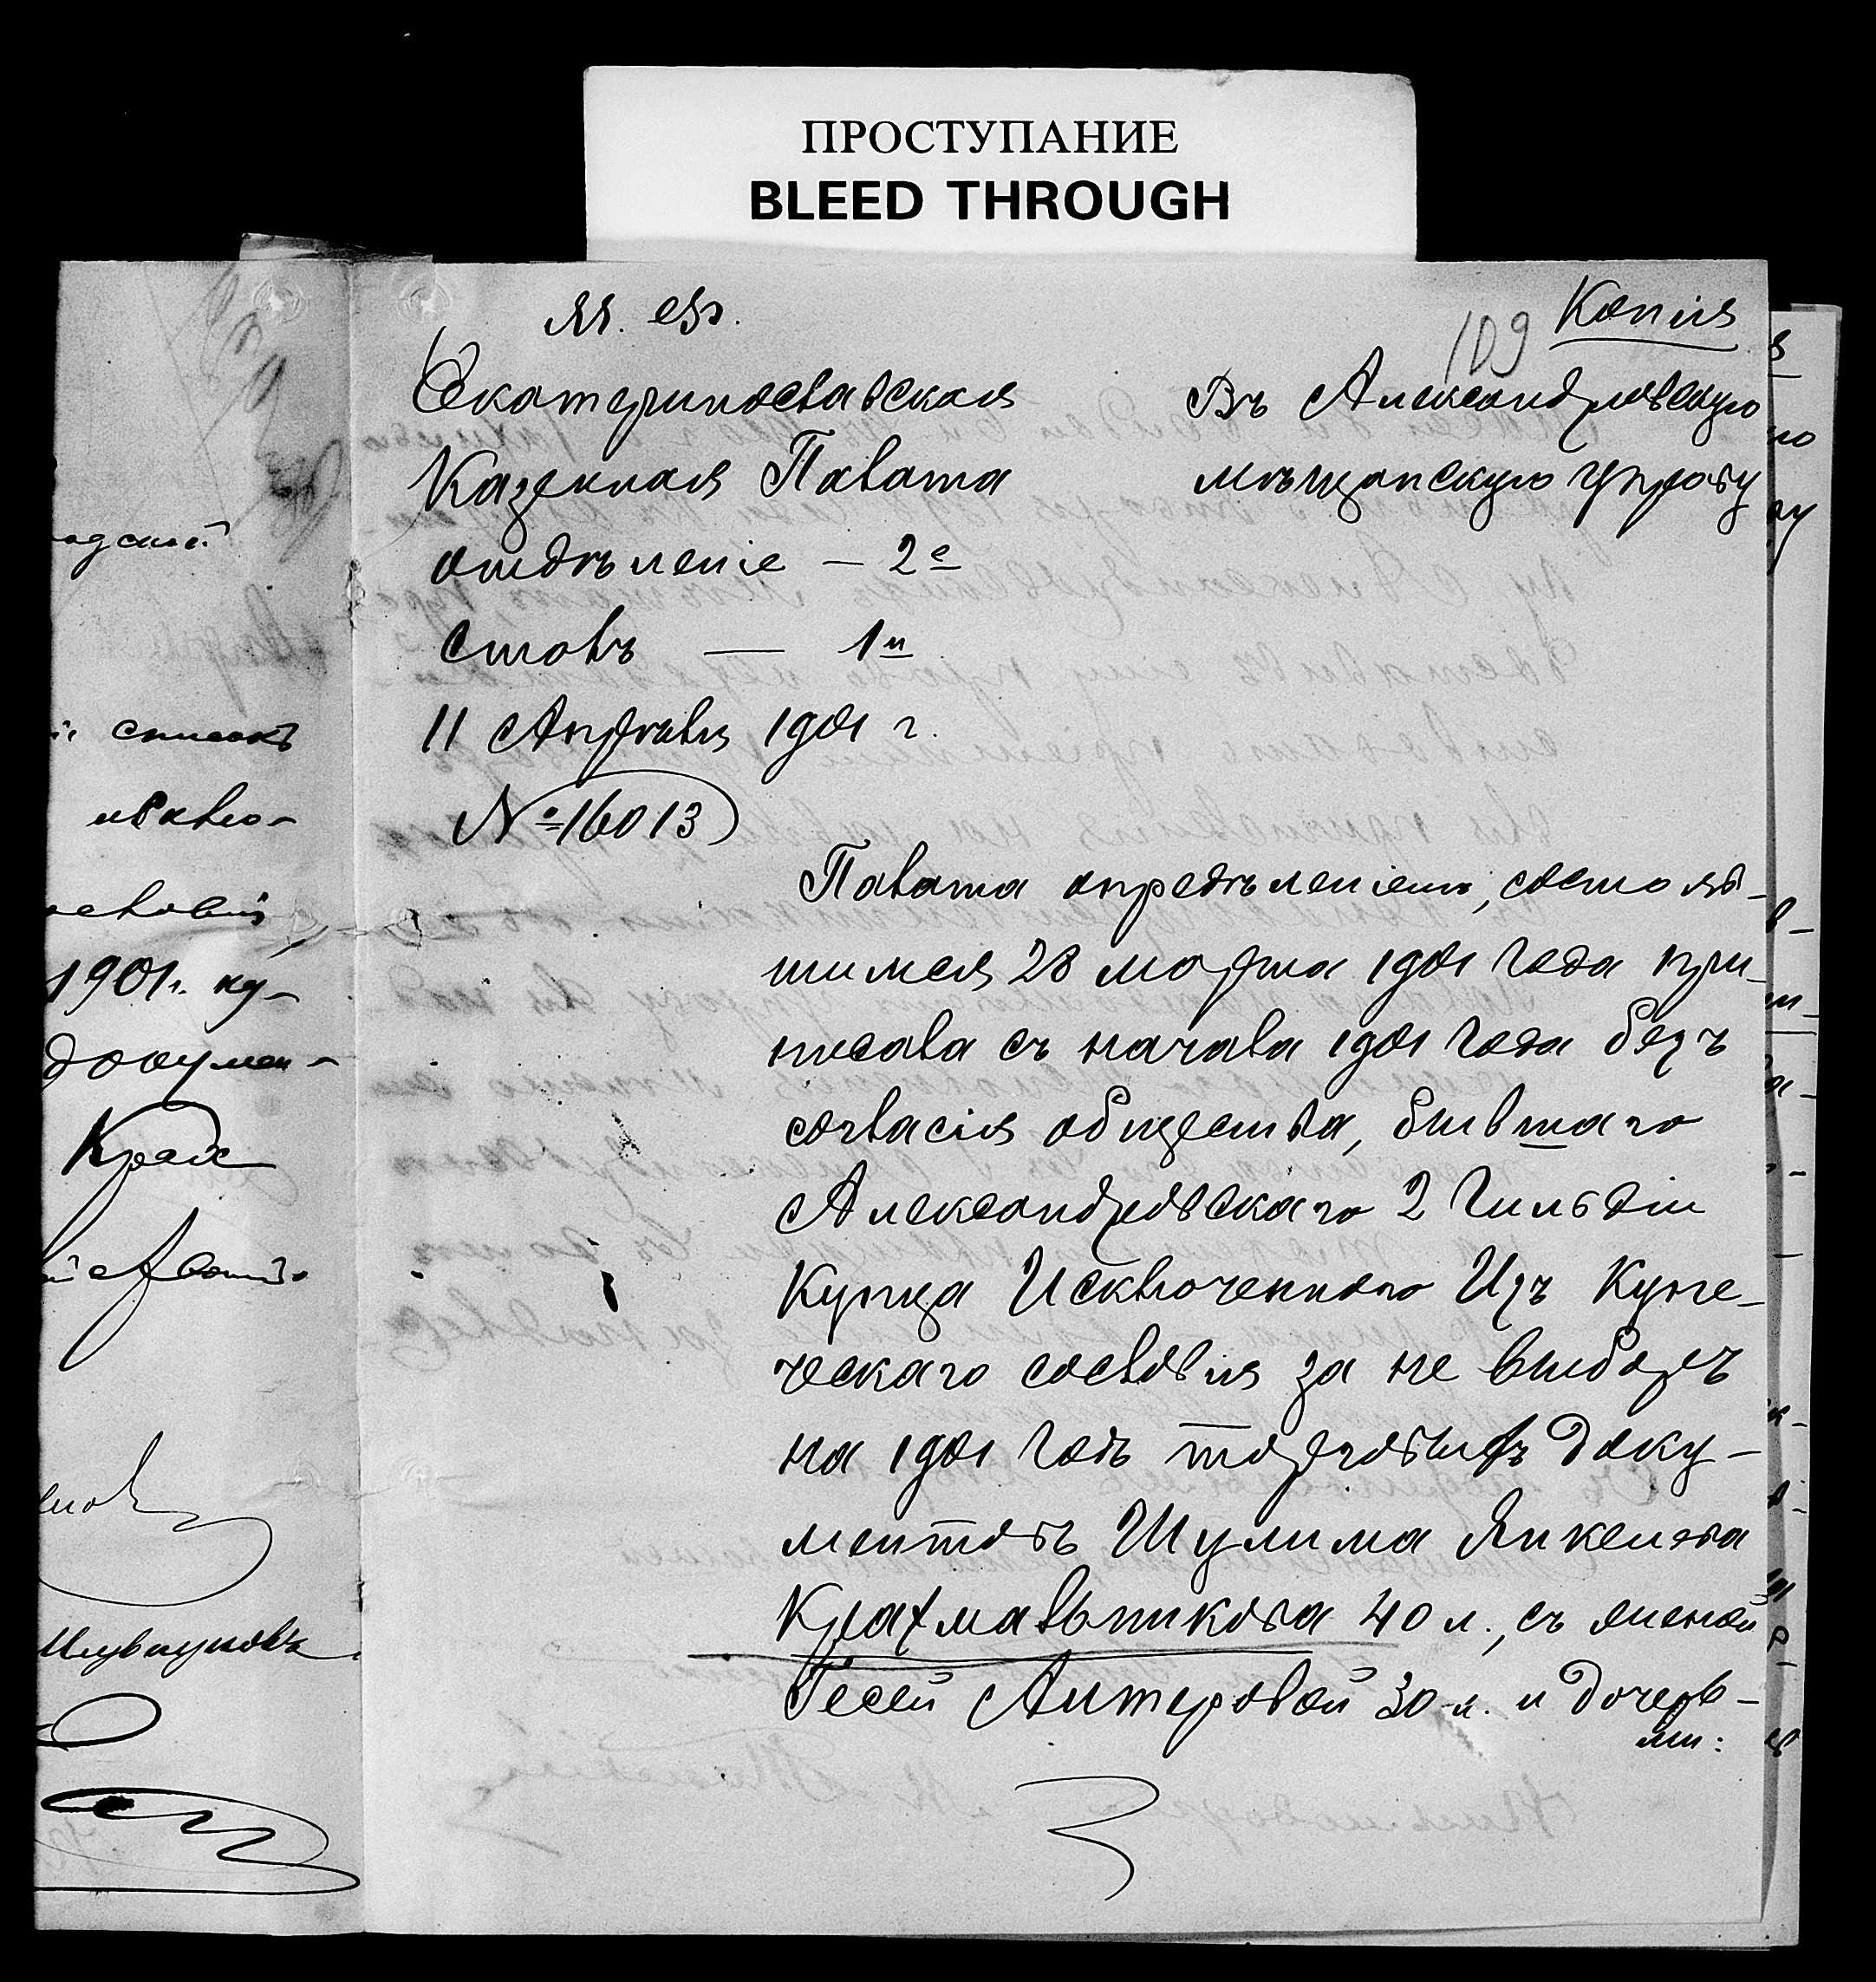 ПРОСТУПАНИЕ
BLEED THROUGH
М. Ф.
Копія
109
Екатеринославская
Казенная Палата
отдѣленіе — 2е
столъ — 1й
11 Апрѣля 1901 г.
№ 16013
Въ Александровскую
мѣщанскую управу
Палата опредѣленіемъ, состояв-
шимся 28 марта 1901 года при-
писала съ начала 1901 года безъ
согласія общества, бывшаго
Александровскаго 2 Гильдіи
Купца Исключеннаго Изъ Купе-
ческаго сословія за не выборъ
на 1901 годъ торговыхъ доку-
ментовъ Шулима Янкелева
Крахмальникова 40 л., съ женой
Гесей Литеровой 30 л. и дочерь-
ми:
списокъ
исклю-
1901 г. ку-
докумен-